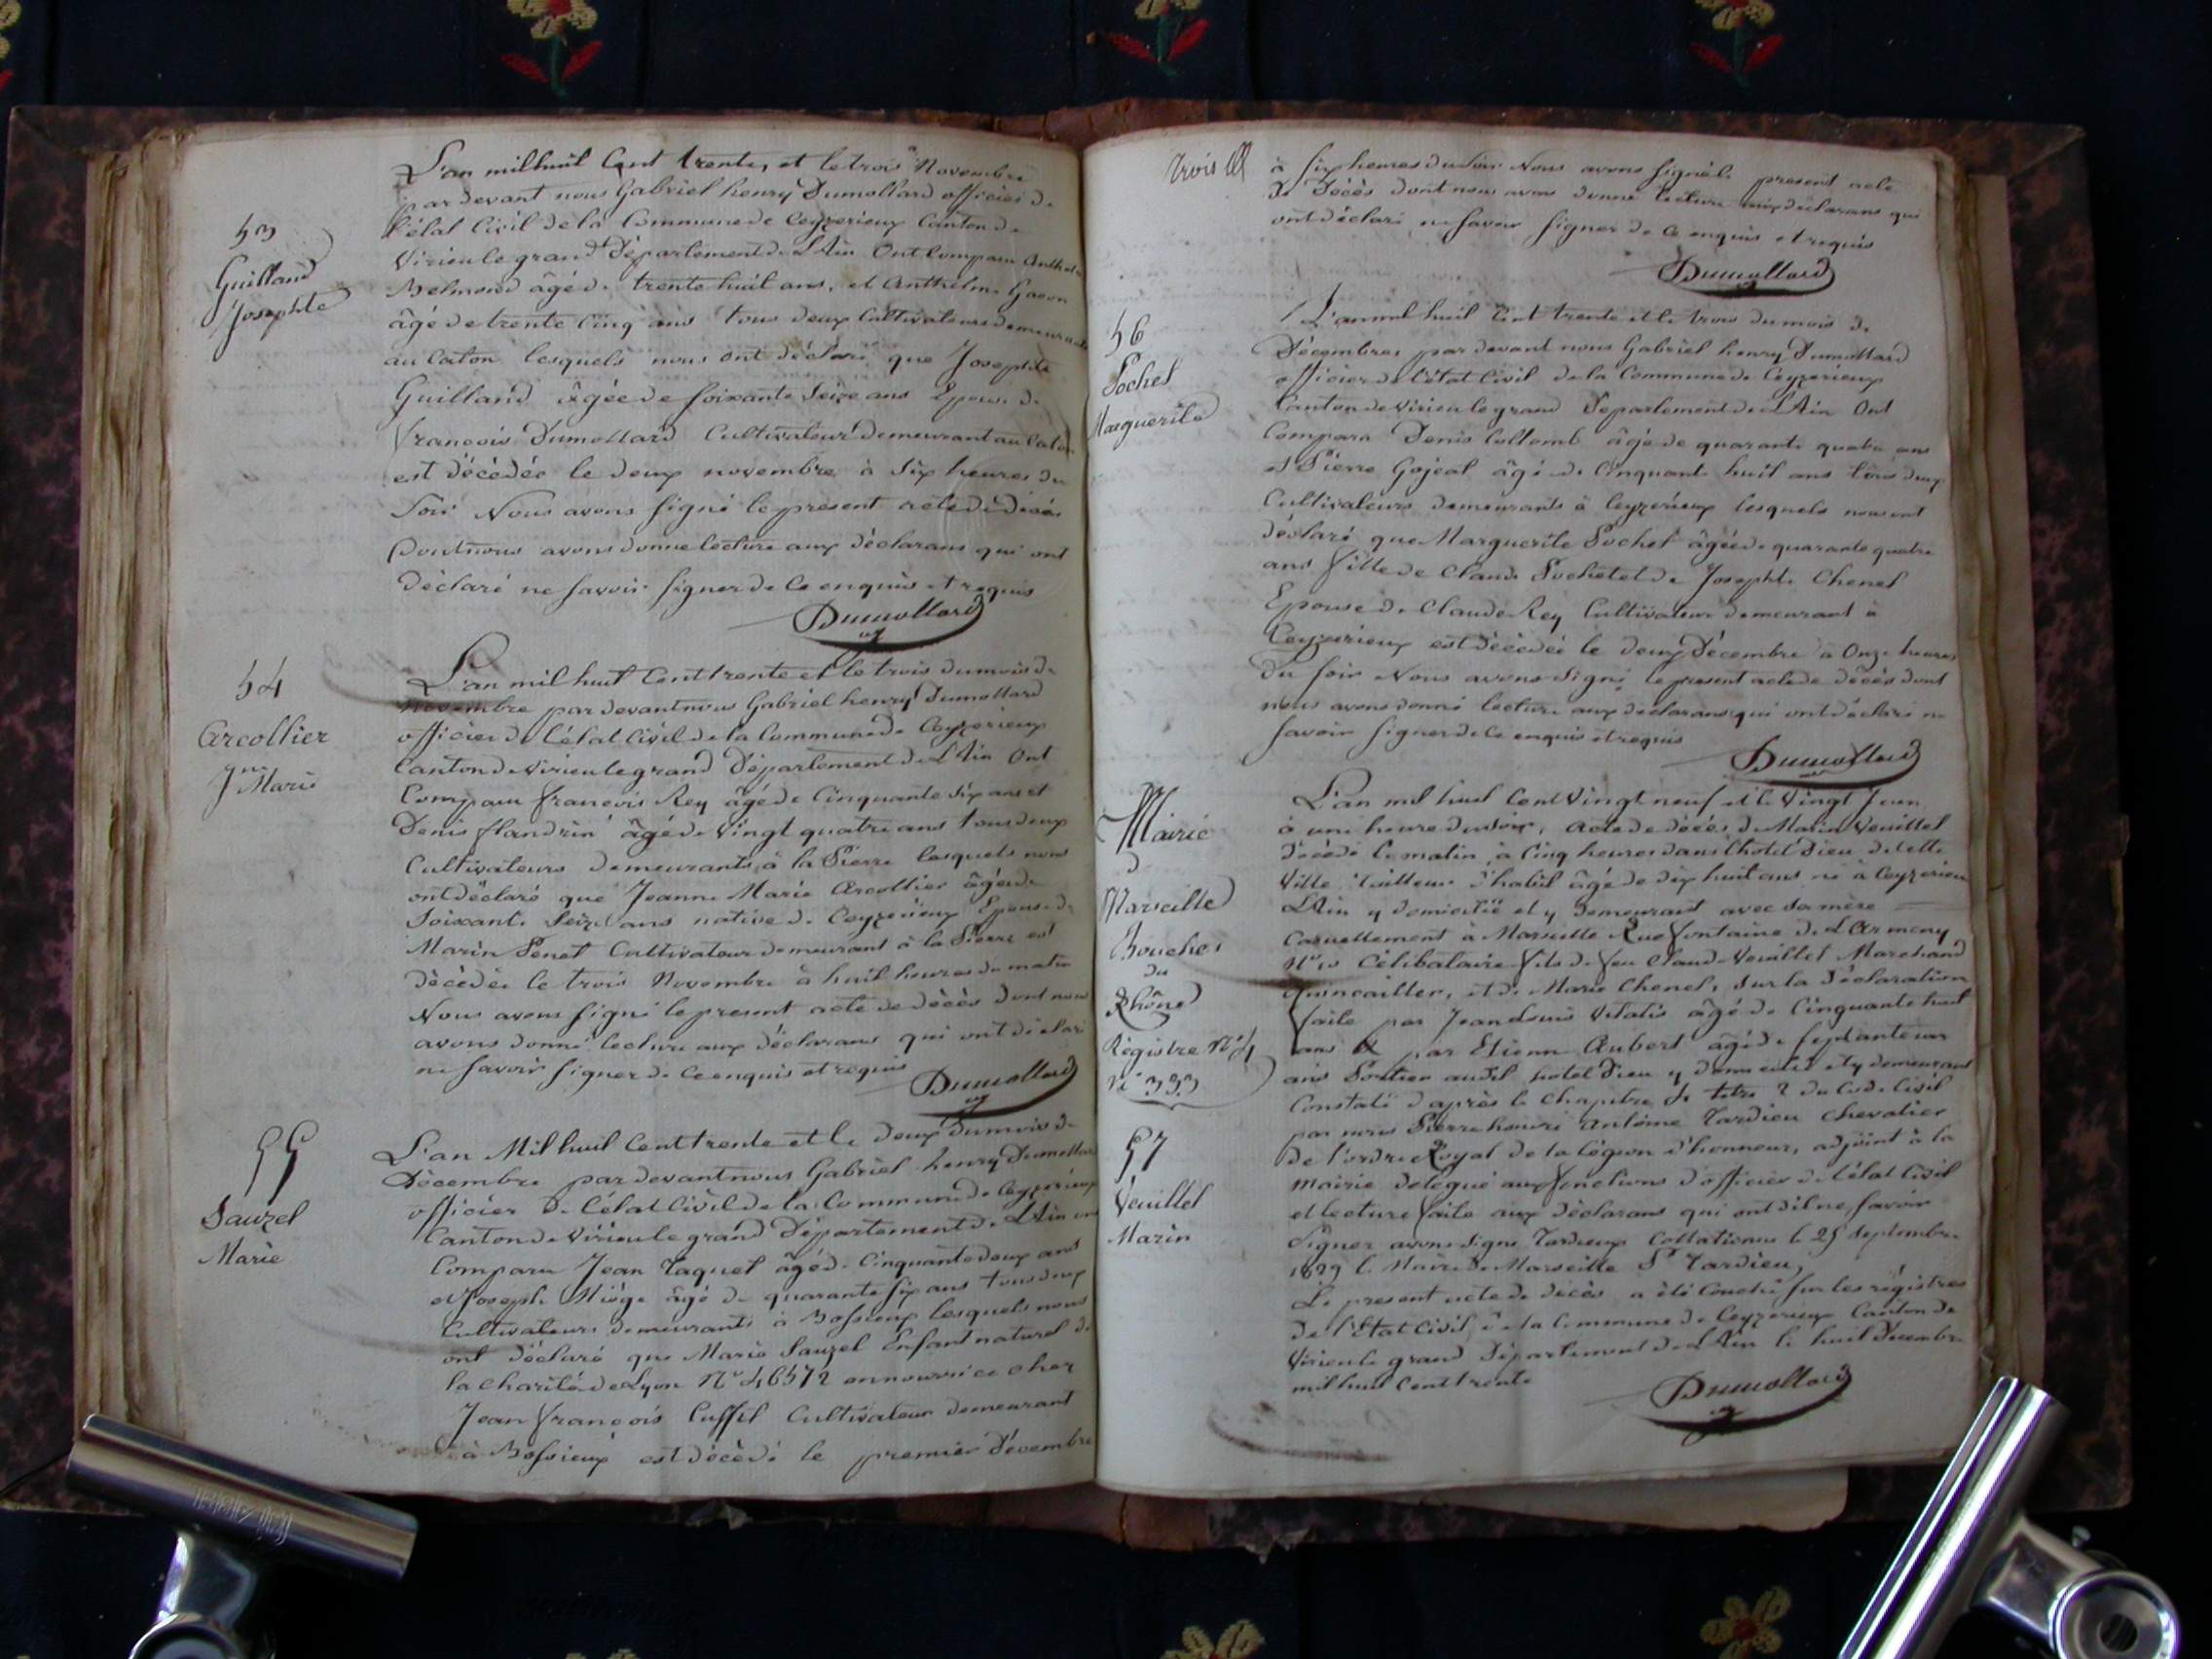 L'an mil huit Cent trente, et le trois Novembre
par devant nous Gabriel henry Dumollard officier de
l'état Civil de la Commune de Ceyzerieux Canton de
Virieu le grand Département de L'Ain Ont Comparu Anthelme
Belmond âgé de trente huit ans, et Anthelme Gavon
âgé de trente Cinq ans tous deux Cultivateurs demeurants
au Caton lesquels nous ont déclaré que Josephte
Guilland âgée de soixante Seize ans Epouse de
François Dumollard Cultivateur demeurant au Caton
est décédée le deux novembre à Six heures du
Soir Nous avons signé le present acte de décès
Dont nous avons donné lecture aux déclarans qui ont
Déclaré ne savoir signer de ce enquis et requis
Dumollard
53
Guilland
Josephte
L'an mil huit Cent trente et le trois du mois de
Novembre par devant nous Gabriel henry Dumollard
officier de l'état Civil de la Commune de Ceyzerieux
Canton de Virieu le grand Département de L'Ain Ont
Comparu francois Rey âgé de Cinquante Six ans et
Denis flandrin âgé de Vingt quatre ans tous deux
Cultivateurs demeurants à la Pierre lesquels nous
ont déclaré que Jeanne Marie Arcollier âgée de
Soixante Seize ans native de Ceyzerieux Epouse de
Marin Penet Cultivateur demeurant à la Pierre est
décédée le trois Novembre à huit heures du matin
Nous avons signé le present acte de décès dont nous
avons donné lecture aux déclarans qui ont déclaré
ne savoir signer de ce enquis et requis
Dumollard
54
Arcollier
Jne Marie
L'an Mil huit Cent trente et le deux du mois de
Décembre par devant nous Gabriel henry Dumollard
officier de l'état Civil de la Commune de Ceyzerieux
Canton de Virieu le grand Département de L'Ain ont
Comparu Jean Taquet âgé de Cinquante deux ans
et Joseph Miège âgé de quarante six ans tous deux
Cultivateurs demeurants à Bossieux lesquels nous
ont déclaré que Marie Sauzel Enfant naturel de
la charité de Lyon N° 46572 en nourrice chez
Jean françois Cussil Cultivateur demeurant
à Bossieux est décédé le premier Décembre
55
Sauzel
Marie
trois
à six heures du soir Nous avons signé le present acte
de Décès dont nous avons donné lecture aux déclarans qui
ont déclaré ne savoir signer de ce enquis et requis
Dumollard
56
Pochet
Marguerite
L'an mil huit Cent trente et le trois du mois de
Décembre, par devant nous Gabriel henry Dumollard
officier de l'état Civil de la Commune de Ceyzerieux
Canton de Virieu le grand Departement de L'Ain Ont
Comparu Denis Collomb âgé de quarante quatre ans
et Pierre Gojeat âgé de Cinquante huit ans tous deux
Cultivateurs demeurants à Ceyzerieux lesquels nous ont
déclaré que Marguerite Pochet âgée de quarante quatre
ans fille de Claude Pochet et de Josephte Chenel
Epouse de Claude Rey Cultivateur demeurant à
Ceyzerieux est décédée le deux Décembre à Onze heures
du soir Nous avons signé le present acte de décès dont
nous avons donné lecture aux déclarans qui ont déclaré ne
savoir signer de ce enquis et requis
Dumollard
Mairie
de
Marseille
Bouches
du
Rhône
Régistre N° 4
N° 393
57
Veuillet
Marin
L'an mil huit Cent Vingt neuf et le Vingt Juin
à une heure du soir, acte de décès de Marin Veuillet
décédé le matin à Cinq heures dans l'hotel Dieu de cette
Ville tailleur d'habit âgé de dix huit ans né à Ceyzerieu
L'Ain y domicilié et y demeurant avec sa mère
Casuellement à Marseille Rue fontaine de L'Armeny
N° 10 Célibataire fils de feu Claude Veuillet Marchand
Quincailler, et de Marie Chenel, sur la déclaration
faite par Jean Louis Vitalis âgé de Cinquante huit
ans & par Etienne Aubert âgé de septante un
ans Portier audit hotel Dieu y domicilié et y demeurant
Constaté d'après le Chapitre 4 titre 2 du Code Civil
par nous Pierre henri Antoine Tardieu Chevalier
de l'ordre Royal de la légion d'honneur, adjoint à la
mairie délégué aux fonctions d'officier de l'état Civil
et lecture faite aux déclarans qui ont dit ne savoir
Signer avons signé Tardieu Collationné le 25 Septembre
1829 le Maire de Marseille St Tardieu,
Le present acte de décès a été Couché sur les régistres
de l'Etat Civil de la Commune de Ceyzerieux Canton de
Virieu le grand Département de L'Ain le huit Décembre
mil huit Cent trente
Dumollard